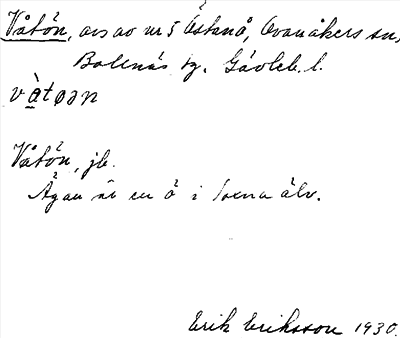 Våtön, avs av nr 5 Östanå, Ovanåkers sn,
Bollnäs tg. Gävleb. l.
vàtøən
Våtön, jb.
Ägan är en ö i Loena älv.
Erik Eriksson 1930.